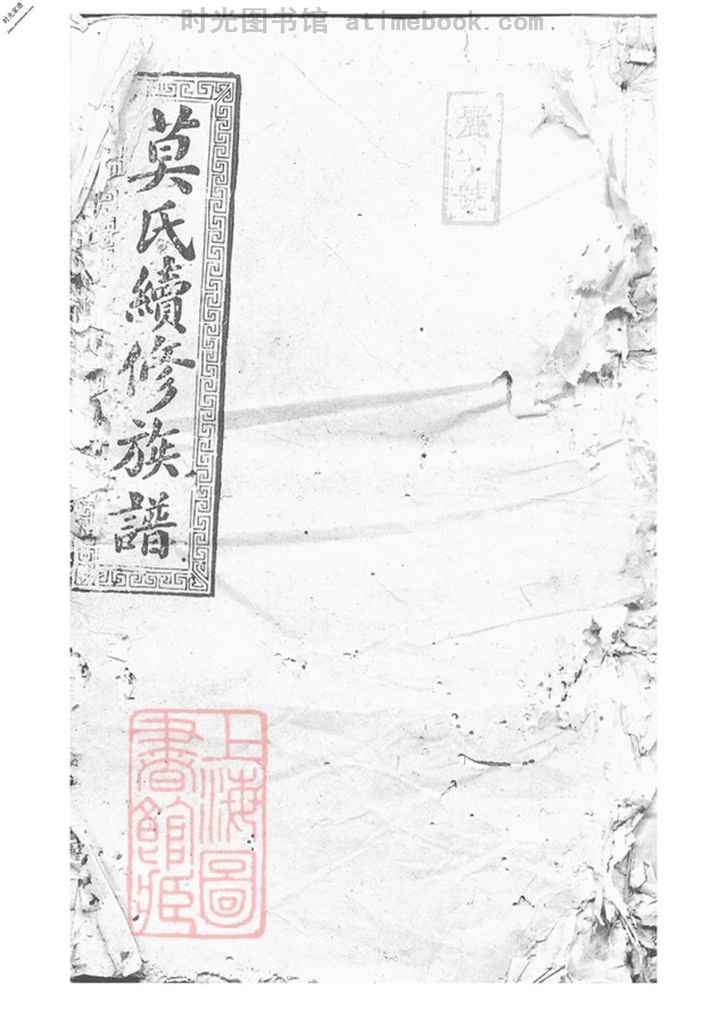 时光图书馆 atimebook.com
时光家谱
莫氏續修族譜
上海圖
書館藏